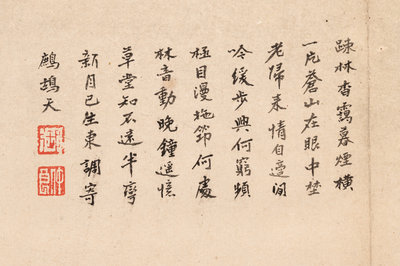 疎林杳靄暮煙橫
一片蒼山在眼中埜
老歸來情自邊閒
吟緩步興何窮頻
極目漫拖筇何處
林音動晚鐘遥憶
草堂知不遠半彎
新月已生東調寄
鷓鴣天